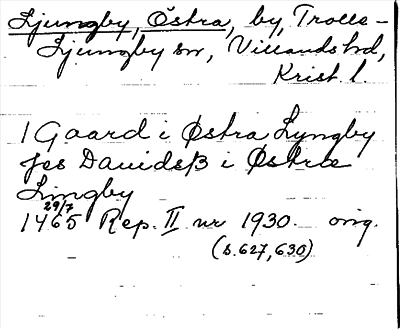 Ljungby, Östra, by, Trolle-
Ljungby sn, Villands hd,
Krist. l.
1 Gaard i Østra Lyngby
Jes Davidsß i Østræ
Lingby
29/7
1465 Rep. II nr 1930. orig.
(s. 627, 630)